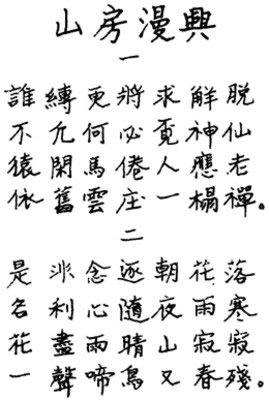 山房漫興
一
誰縛更將求解脫
不凡何必覓神仙
猿閑馬倦人應老
依舊雲庄一榻禪。
二
是非念逐朝花落
名利心隨夜雨寒
花盡雨晴山寂寂
一聲啼鳥又春殘。